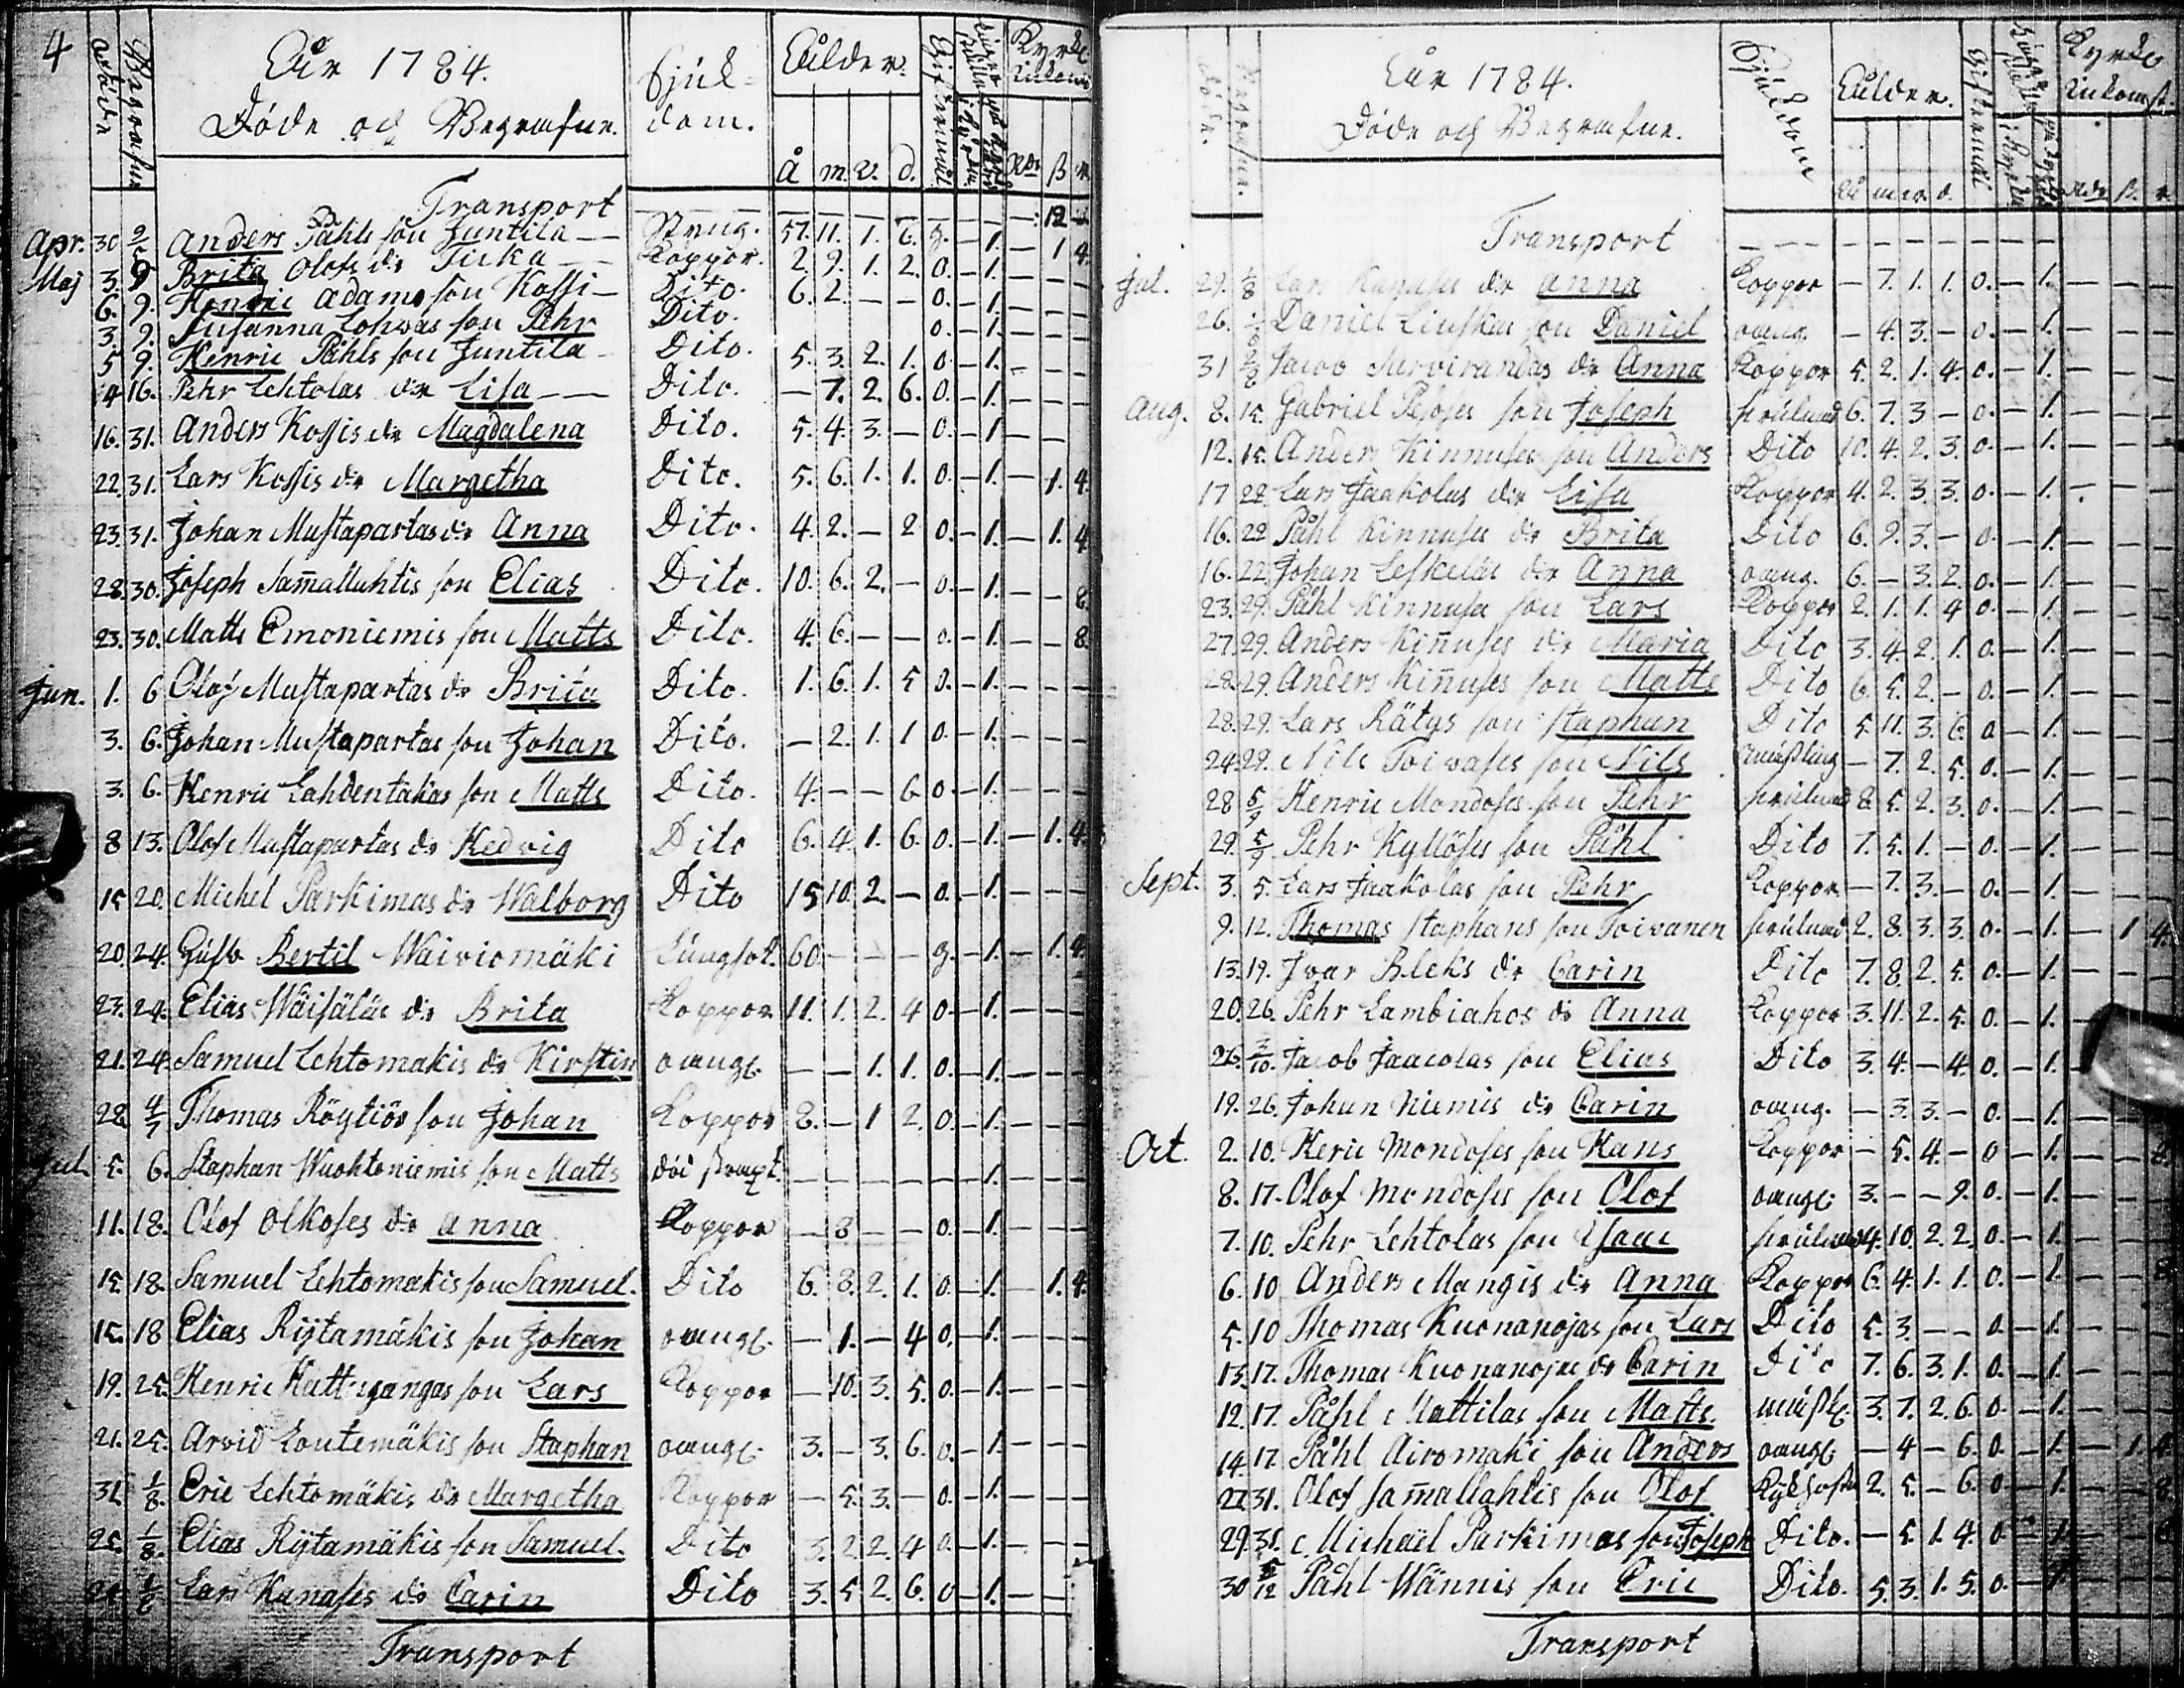 4
Döde
Begrafne
Åår 1784.
Döde och Begrafne.
Sjukdom.
Åulder.
Kyrko Inkomst
Å m. v. d. Rdr ß r.
Transport — — — — — — — : 12 —
Apr. 30 9/5 Anders Påhls son Juntila — 57. 11. 1. 6. g. — 1. — 1 4.
Maj 3. 9 Brita Olofs dr Ticka — Koppor. 2. 9. 1. 2. 0. — 1. — — —
6. 9. Henric Adams son Kossi — Dito. 6. 2. — — 0. — 1. — — —
3. 9. Susanna Lohwas son Pehr Dito. 0. — 1. — — —
5 9. Henric Påhls son Juntila — Dito. 5. 3. 2. 1. 0. — 1. — — —
14 16. Pehr Lehtolas dr Lisa — — Dito. — 7. 2. 6. 0. — 1. — — —
16. 31. Anders Kossis dr Magdalena Dito. 5. 4. 3. — 0. — 1 — — —
22. 31. Lars Kossis dr Margetha Dito. 5. 6. 1. 1. 0. — 1. — 1. 4.
23. 31. Johan Mustapartas dr Anna Dito. 4. 2. — 2 0. — 1. — 1. 4
28. 30. Joseph Sam̄allahtis son Elias Dito. 10. 6. 2. — 0. — 1. — — 8.
23. 30. Matts Emoniemis son Matts Dito. 4. 6. — — 0. — 1. — — 8.
Jun. 1. 6 Olof Mustapartas dr Brita Dito. 1. 6. 1. 5 0. — 1. — — —
3. 6. Johan Mustapartas son Johan Dito. — 2. 1. 1 0. — 1. — — —
3. 6. Henric Lahdentakas son Matts Dito. 4. — — 6 0. — 1. — — —
8 13. Olof Mustapartas dr Hedvig Dito 6. 4. 1. 6. 0. — 1. — 1. 4.
15 20. Michel Parkimas dr Walborg Dito 15 10. 2. — 0. — 1. — — —
20. 24. Bertil Waiviomäki Lungsot. 60. — — — g. — 1. — 1. 4.
23. 24. Elias Wäisäläs dr Brita Koppor 11. 1. 2. 4 0. — 1. — — —
21. 24. Samuel Lehtomakis dr Kirstin oangf. — — 1. 1. 0. — 1. — — —
28. 4/7 Thomas Röytiös son Johan Koppor 8. — 1 2. 0. — 1. — — —
Jul. 5. 6. Staphan Wuohtoniemis son Matts — — — — — — 1. — — —
11. 18. Olof Olkoses dr Anna Koppor — 8 — — 0. — 1. — — —
15. 18. Samuel Lehtomakis son Samuel. Dito 6. 8. 2. 1. 0. — 1. — 1. 4.
15. 18 Elias Rijtamäkis son Johan oangf. — 1. — 4 0. — 1. — — —
19. 25. Henric Hattugangas son Lars Koppor — 10. 3. 5. 0. — 1. — — —
21. 25. Arvid Loutemäkis son Staphan oangf. 3. — 3. 6. 0. — 1. — — —
31. 1/8. Eric Lehtomäkis dr Margetha Koppor — 5. 3. — 0. — 1. — — —
25. 1/8. Elias Rijtamäkis son Samuel. Dito 3. 2. 2. 4 0. — 1. — — —
1/8 Lars Kanases dr Carin Dito 3. 5 2. 6. 0 — 1. — —
Transport
Döde.
Begrafne.
Åår 1784.
Döde och Begrafne.
Sjukdom
Åulder.
Kyrko Inkomst.
Å m v d. Rdr ß. r
Transport — — — — — — — — — —
Jul. 29. 1/8 Lars Kanases dr Anna Koppor — 7. 1. 1. 0. — 1. — — —
26. Daniel Leuskas son Daniel oang. — 4. 3. — 0. — 1. — — —
31 Jacob Survirandas dr Anna Koppor 5. 2. 1. 4. 0. — 1. — — —
Aug. 8. 15. Gabriel Pesoses son Joseph 6. 7. 3 — 0. — 1. — — —
12. 15. Anders Kinnuses son Anders Dito 10. 4. 2. 3. 0. — 1. — — —
17 22 Lars Jaakolas dr Lisa Koppor 4. 2. 3. 3. 0. — 1. — — —
16. 22 Påhl Kinnuses dr Brita Dito 6. 9. 3. — 0. — 1. — — —
16. 22. Johan Leskelas dr Anna oang. 6. — 3. 2. 0. — 1. — — —
23. 29. Påhl Kinnuses son Lars Koppor 2. 1. 1. 4 0. — 1. — — —
27. 29. Anders Kin̄uses dr Maria Dito 3. 4. 2. 1. 0. — 1. — — —
28. 29. Anders Kin̄uses son Matts Dito 6. 5. 2. — 0. — 1. — — —
28. 29. Lars Rätys son Staphan Dito 5. 11. 3. 6. 0 — 1. — — —
24. 29. Nils Toivases son Nils — 7. 2. 5. 0. — 1. — — —
28 5/9 Henric Mondoses son Pehr 8. 5. 2. 3. 0. — 1. — — —
29. 5/9. Pehr Kyllöses son Påhl Dito 7. 5. 1. — 0. — 1. — — —
Sept. 3. 5. Lars Jaakolas son Pehr Koppor — 7. 3. — 0. — 1. — — —
9. 12. Thomas Staphans son Toivanen 2. 8. 3. 3. 0. — 1. — 1 4.
13. 19. Ivar Bleks dr Carin Dito 7. 8. 2. 5. 0. — 1. — — —
20. 26. Pehr Lambiahos dr Anna Koppor 3. 11. 2. 5. 0. — 1. —
26. 3/10. Jacob Jaacolas son Elias Dito 3. 4. — 4. 0. — 1.
19. 26. Johan Niemis dr Carin oang. — 3. 3. — 0. — 1. —
Oct. 2. 10. Heric Mondoses son Hans Koppor — 5. 4. — 0 — 1. — — 8.
8. 17. Olof Mondoses son Olof oangf. 3. — — 9. 0. — 1. — — —
7. 10. Pehr Lehtolas son Isaac 4. 10. 2. 2. 0. — 1. — — —
6. 10 Anders Mangis dr Anna Koppor 6. 4. 1. 1. 0. — 1. — — 8.
5. 10 Thomas Kuonanojas son Lars Dito 5. 3. — — 0. — 1. — — —
13. 17. Thomas Kuonanojas dr Carin Dito 7. 6. 3. 1. 0. — 1. — — —
12. 17. Påhl Mattilas son Matts. 3. 7. 2. 6. 0. — 1. — — —
14. 17 Påhl Airomaki son Anders oangf. — 4 — 6. 0. — 1. — 1.
27. 31. Olof Sam̄allahtis son Olof Kikhosta 2. 5. — 6. 0 — 1. — — 8.
29. 31. Michaël Parkimas son Joseph Dito. — 5. 1. 4. 0 — 1. — —
30 5/12 Påhl Wännis son Eric Dito. 5. 3. 1. 5. 0. — 1.
Transport